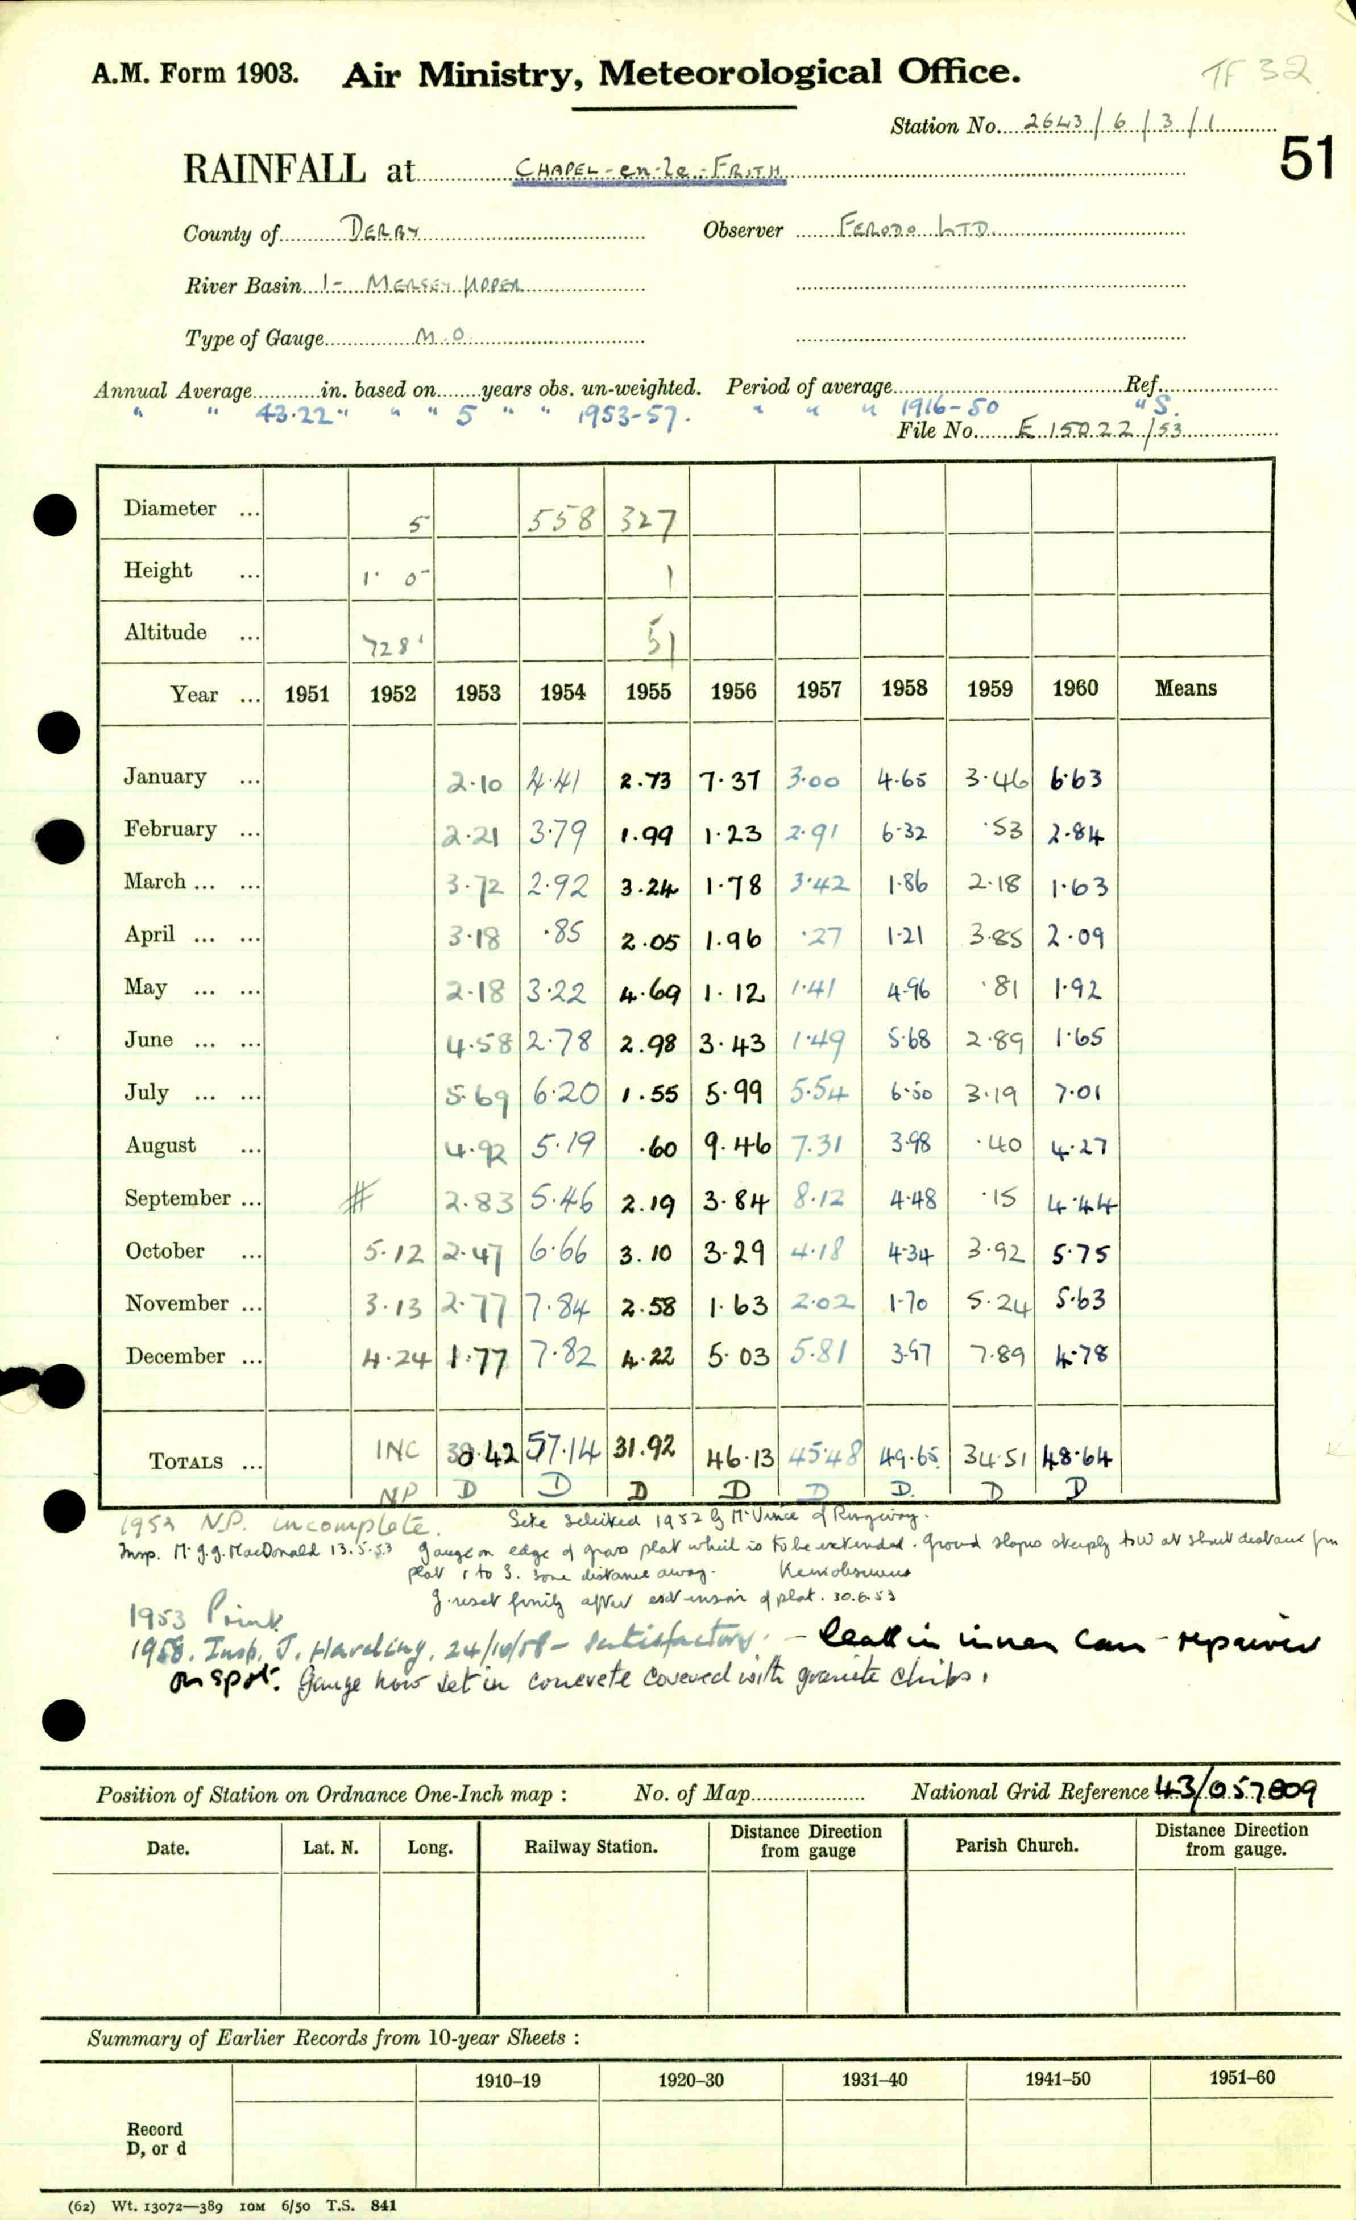 A.M. Form 1903. Air Ministry, Meteorological Office. TF 32
Station No. 2643/6/3/1
51
RAINFALL at CHAPEL-en-le-FRITH
County of DERBY Observer FERODO LTD.
River Basin 1- MERSEY UPPER
Type of Gauge M.O.
Annual Average in. based on years obs. un-weighted. Period of average Ref.
" " 43.22" " " 5 " " 1953-57. " " " 1916-50 "S.
File No. E 15022/53
Diameter ... 5 558 327
Height ... 1' 0" 1
Altitude ... 728' 51
Year ... 1951 1952 1953 1954 1955 1956 1957 1958 1959 1960 Means
January ... 2.10 4.41 2.73 7.37 3.00 4.65 3.46 6.63
February ... 2.21 3.79 1.99 1.23 2.91 6.32 .53 2.84
March ... ... 3.72 2.92 3.24 1.78 3.42 1.86 2.18 1.63
April ... ... 3.18 .85 2.05 1.96 .27 1.21 3.85 2.09
May ... ... 2.18 3.22 4.69 1.12 1.41 4.96 .81 1.92
June ... ... 4.58 2.78 2.98 3.43 1.49 5.68 2.89 1.65
July ... ... 5.69 6.20 1.55 5.99 5.54 6.50 3.19 7.01
August ... 4.92 5.19 .60 9.46 7.31 3.98 .40 4.27
September ... # 2.83 5.46 2.19 3.84 8.12 4.48 .15 4.44
October ... 5.12 2.47 6.66 3.10 3.29 4.18 4.34 3.92 5.75
November ... 3.13 2.77 7.84 2.58 1.63 2.02 1.70 5.24 5.63
December ... 4.24 1.77 7.82 4.22 5.03 5.81 3.97 7.89 4.78
TOTALS ... INC 38.42 57.14 31.92 46.13 45.48 49.65 34.51 48.64
NP D D D D D D. D D
1952 N.P. incomplete. Site selected 1952 by Mr Vince of Ringway.
Insp. Mr J.G. MacDonald 13.5.53 Gauge on edge of grass plat which is to be extended. Ground slopes steeply to W at short distance from
plat & to S. some distance away. Keen observers
G. reset firmly after extension of plat. 30.6.53
1953 Print
1958. Insp. J. Harding. 24/10/58 - satisfactory. - leak in inner can - repaired
on spot. Gauge now set in concrete covered with granite chips.
Position of Station on Ordnance One-Inch map : No. of Map National Grid Reference 43/057809
Date. Lat. N. Long. Railway Station. Distance Direction from gauge Parish Church. Distance Direction from gauge.
Summary of Earlier Records from 10-year Sheets :
1910–19 1920–30 1931–40 1941–50 1951–60
Record
D, or d
(62) Wt. 13072—389 10M 6/50 T.S. 841